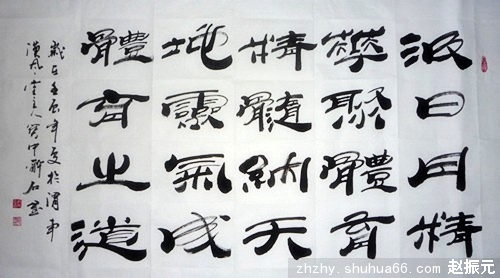 汲日月精
華聚體育
精髓納天
地靈氣成
體育之道
歲在壬辰年夏於渭南
漢風堂主人
zhzhy.shuhua66.com 赵振元